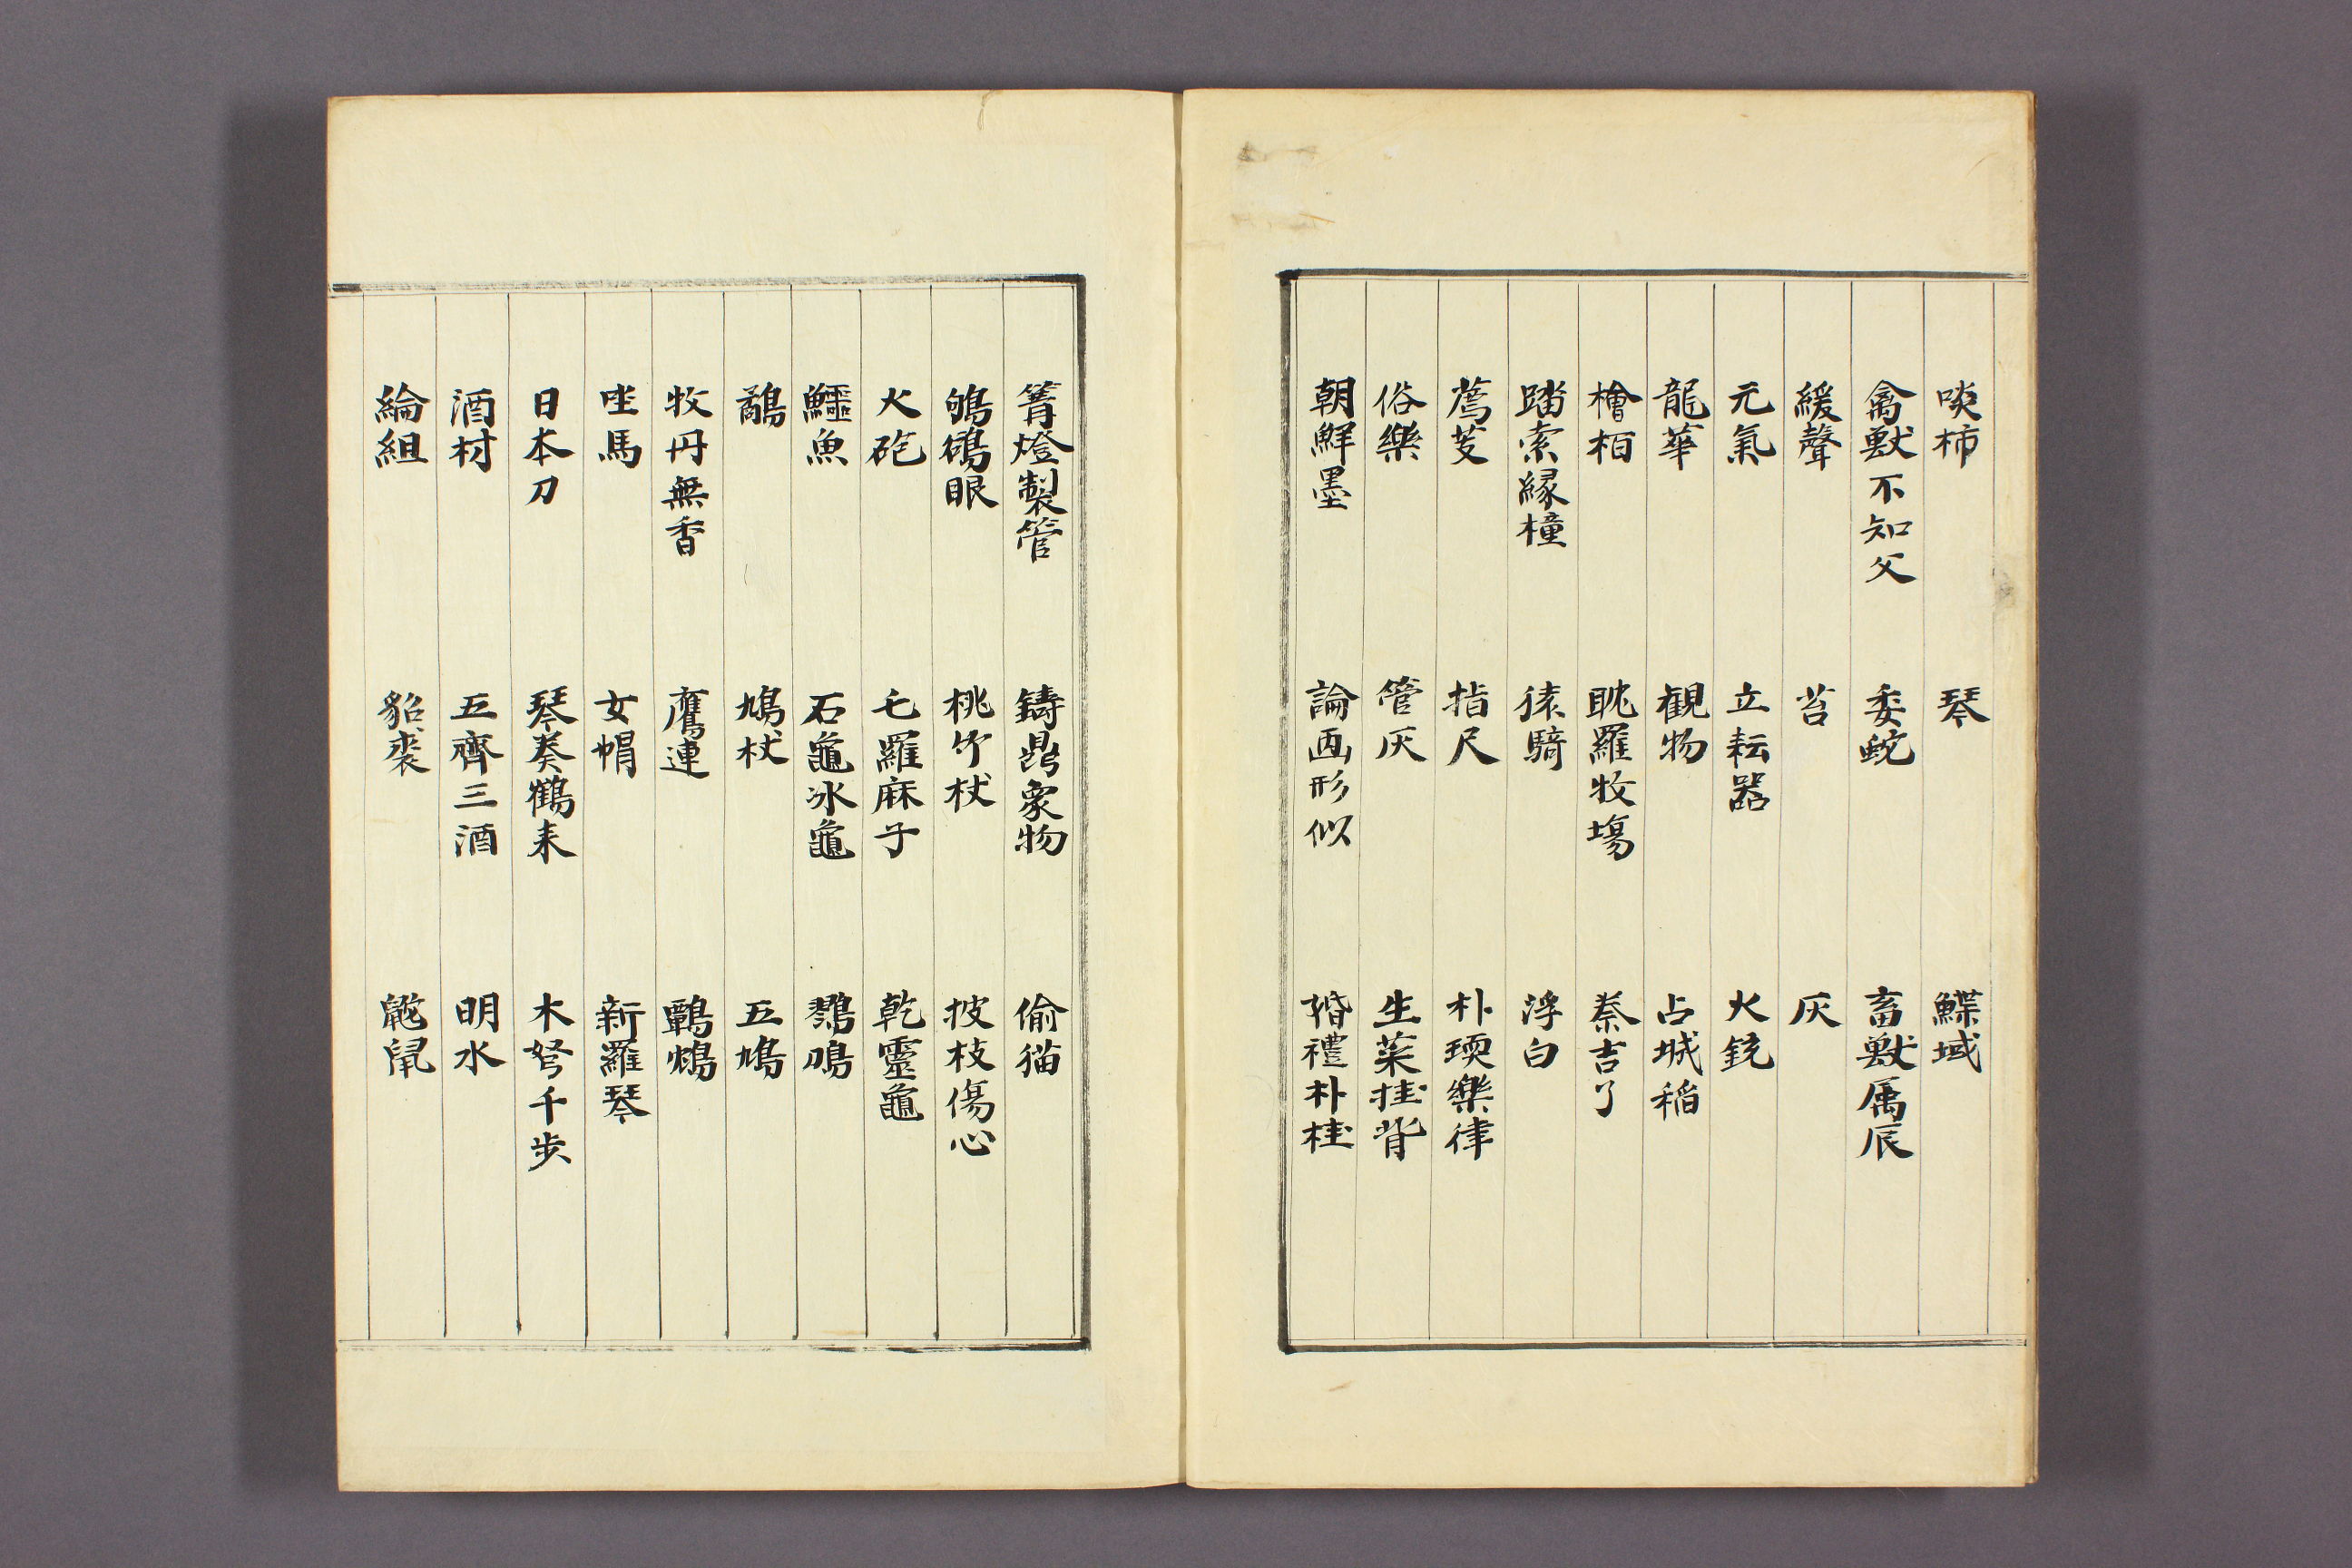 啖柿 琴 鰈域
禽獸不知父 委蛇 畜獸属辰
緩聲 苔 灰
元氣 立耘器 火銃
龍華 觀物 占城稻
檜栢 眈羅牧場 秦吉了
踏索緣橦 猿騎 浮白
薦芰 指尺 朴堧樂律
俗樂 管灰 生菜挂背
朝鮮墨 論画形似 婚禮朴桂
篝燈製管 鑄鼎象物 偷猫
鴝鵒眼 桃竹杖 披枝傷心
火砲 乇羅麻子 乾靈龜
鱷魚 石龜氷龜
鷸 鳩杖 五鳩
牧丹無香 鷹連
㘴馬 女帽 新羅琴
日本刀 琴奏鶴来 木弩千步
酒材 五齊三酒 明水
綸組 貂裘